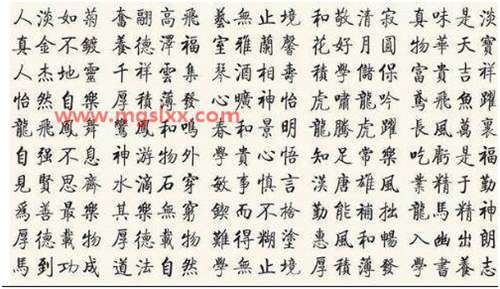 人淡如菊 奮翮高飛 藝無止境 和敬清寂 真味是淡
真金不鍍 養德澤福 室雅蘭馨 花好月圓 物華天寶
人杰地靈 千祥雲集 琴酒相壽 積學儲 富貴吉祥
怡然自樂 厚積薄發 心曠神怡 虎嘯龍吟 鳶飛魚躍
www.mgslxx.com
龍飛鳳舞 鸞鳳和鳴 春和景明 龍騰虎躍 長風萬裏
自强不息 神游物外 學貴心悟 知足常樂 吃虧是福
見賢思齊 水滴石穿 敏事慎言 漢唐雄風 業精于勤
爲善最樂 其樂無窮 鍥而不捨 勤能補拙 龍馬精神
厚德載物 厚德載物 難得糊塗 惠風和暢 入幽出朗
馬到功成 道法自然 學無止境 厚積薄發 學書養